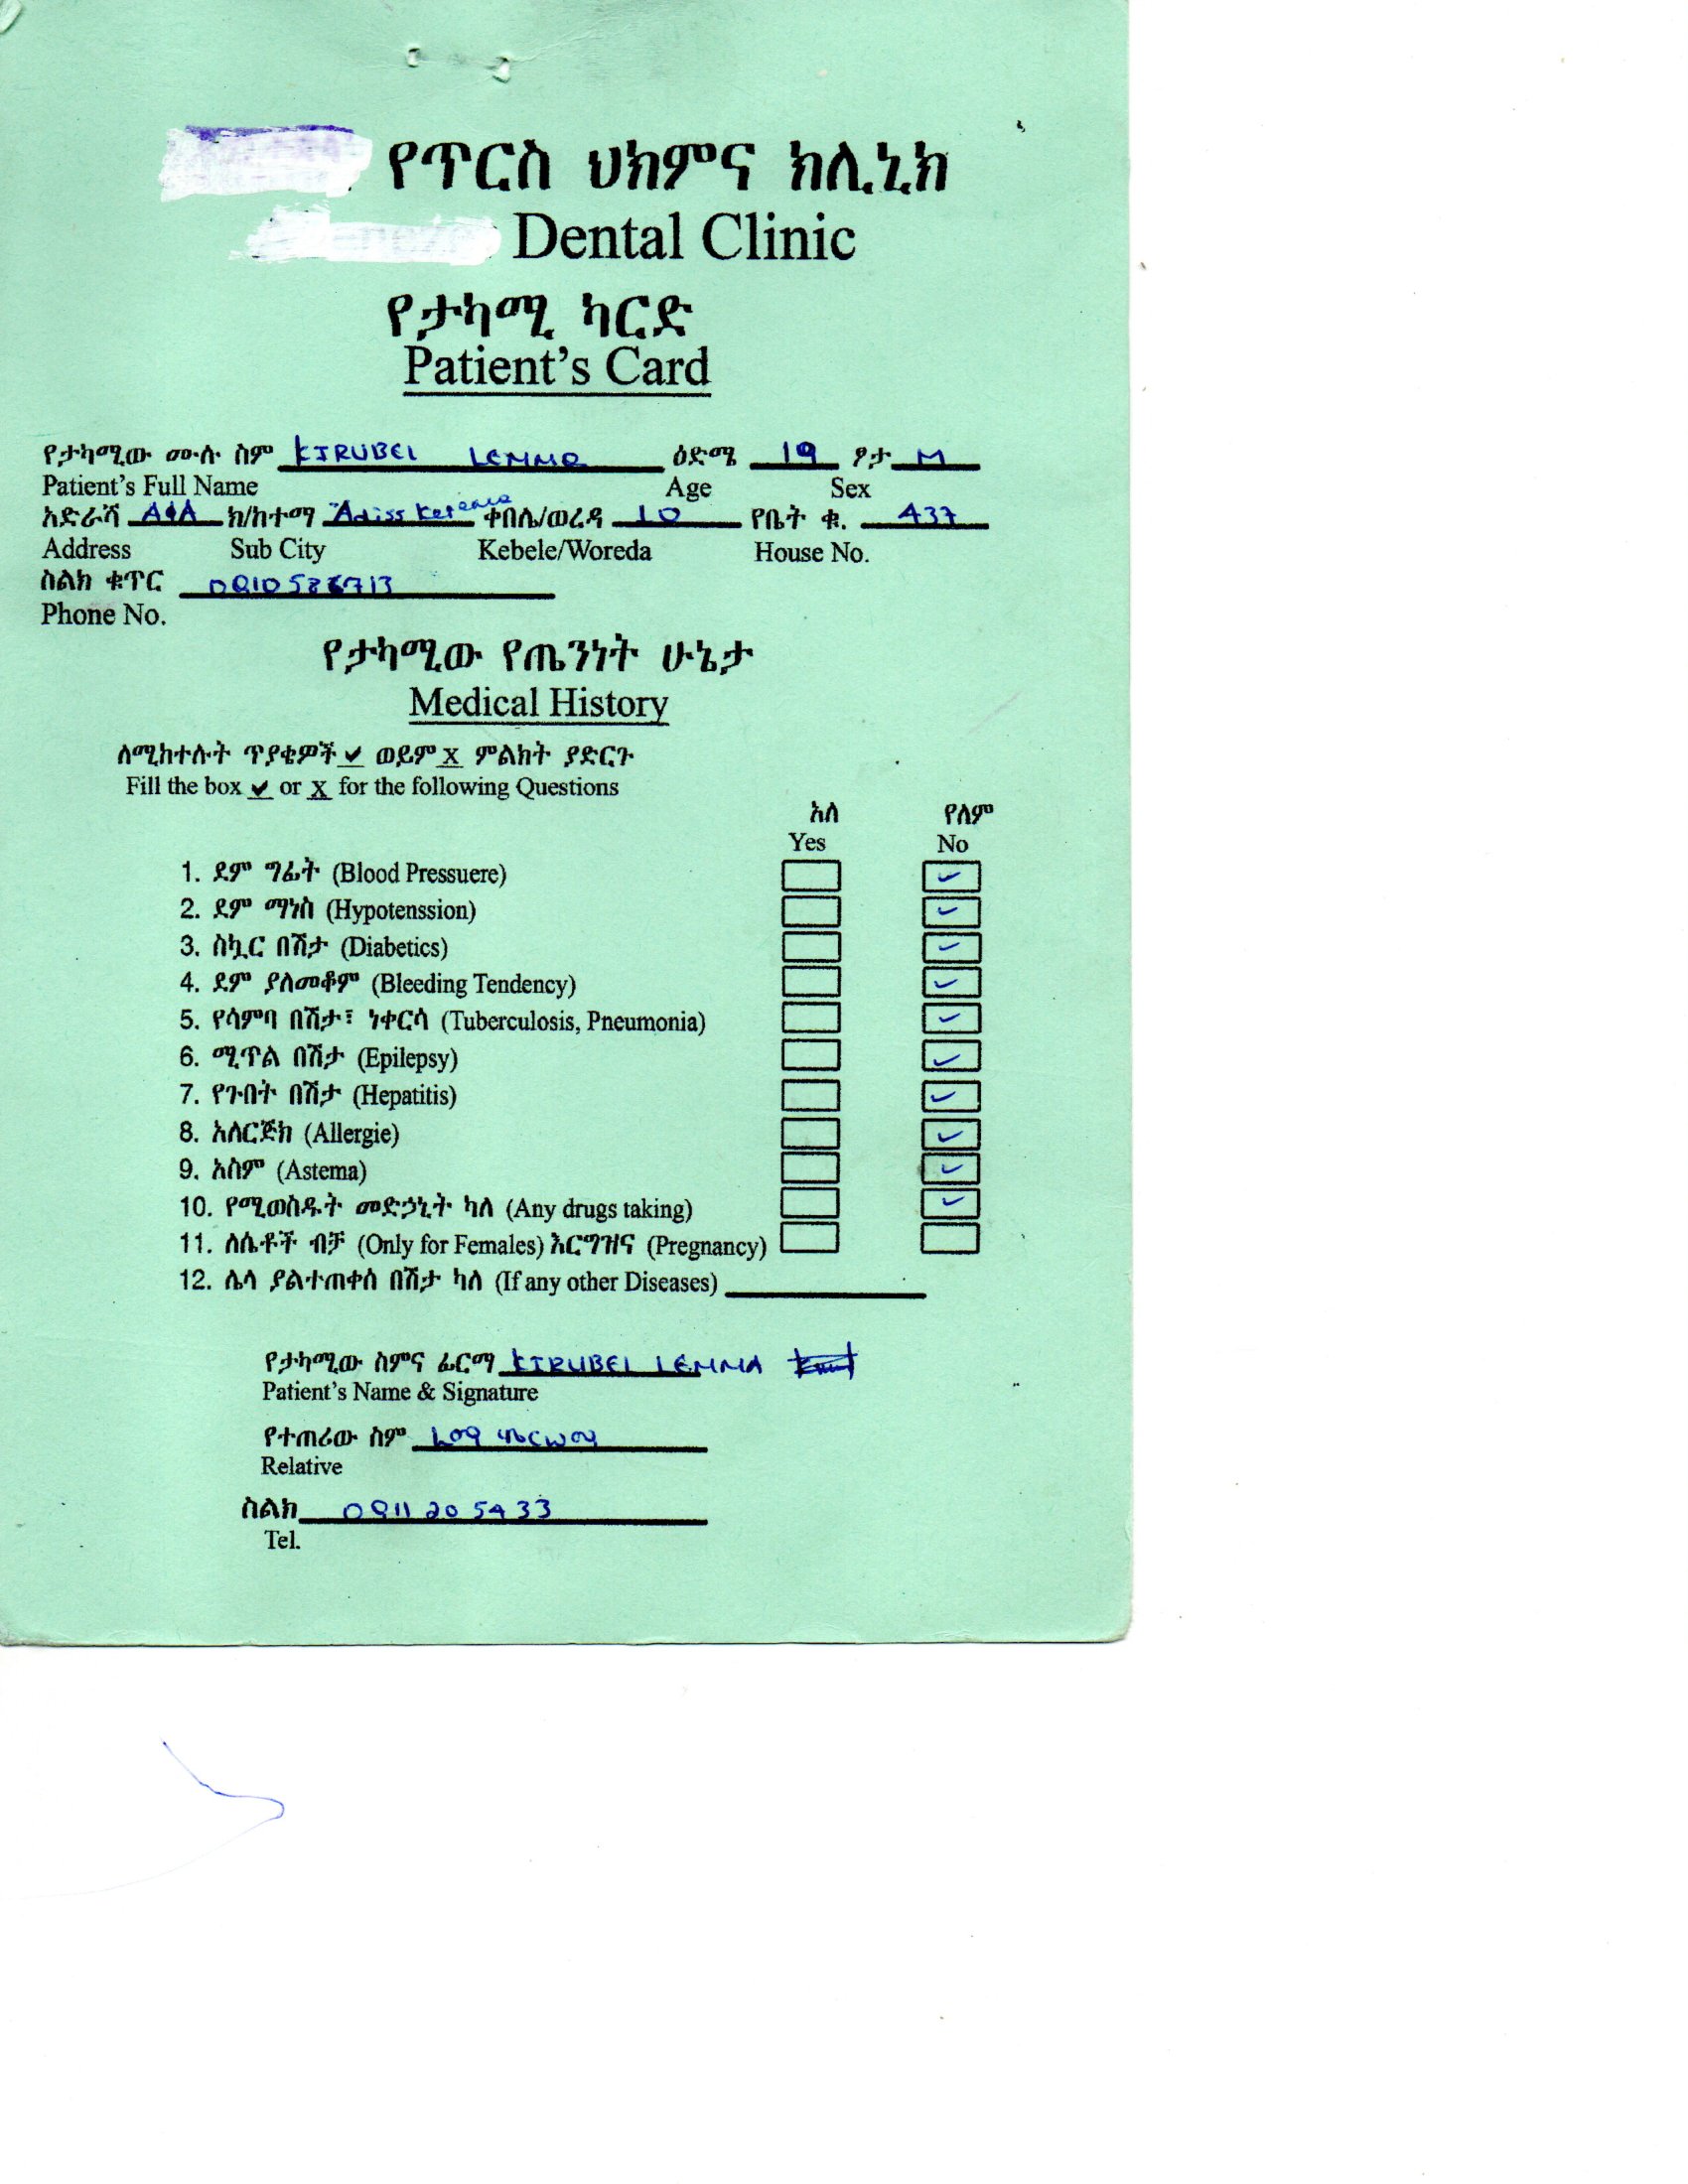 የጥርስ ህክምና ክሊኒክ
Dental Clinic
የታካሚ ካርድ
Patient's Card
የታካሚው ሙሉ ስም KIRUBEL LEMMA ዕድሜ 19 ፆታ M
Patient's Full Name Age Sex
አድራሻ A.A ክ/ከተማ Adiss Ketema ቀበሌ/ወረዳ 10 የቤት ቁ. 437
Address Sub City Kebele/Woreda House No.
ስልክ ቁጥር
Phone No.
የታካሚው የጤንነት ሁኔታ
Medical History
ለሚከተሉት ጥያቄዎች ✓ ወይም X ምልክት ያድርጉ
Fill the box ✓ or X for the following Questions
አለ የለም
Yes No
1. ደም ግፊት (Blood Pressuere) ✓
2. ደም ማነስ (Hypotenssion) ✓
3. ስኳር በሽታ (Diabetics) ✓
4. ደም ያለመቆም (Bleeding Tendency) ✓
5. የሳምባ በሽታ፣ ነቀርሳ (Tuberculosis, Pneumonia) ✓
6. ሚጥል በሽታ (Epilepsy) ✓
7. የጉበት በሽታ (Hepatitis) ✓
8. አለርጅክ (Allergie) ✓
9. አስም (Astema) ✓
10. የሚወስዱት መድኃኒት ካለ (Any drugs taking) ✓
11. ለሴቶች ብቻ (Only for Females) እርግዝና (Pregnancy)
12. ሌላ ያልተጠቀሰ በሽታ ካለ (If any other Diseases)
የታካሚው ስምና ፊርማ KIRUBEL LEMMA
Patient's Name & Signature
የተጠሪው ስም ለማ
Relative
ስልክ 0911 20 54 33
Tel.